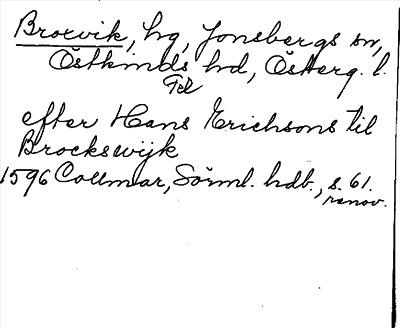 Broxvik, hg, Jonsbergs sn,
Östkinds hd, Österg. l.
Gel
efter Hans Erichsons til
Brockswijk
1596 Collmar, Sörml. hdb., s. 61.
renov.